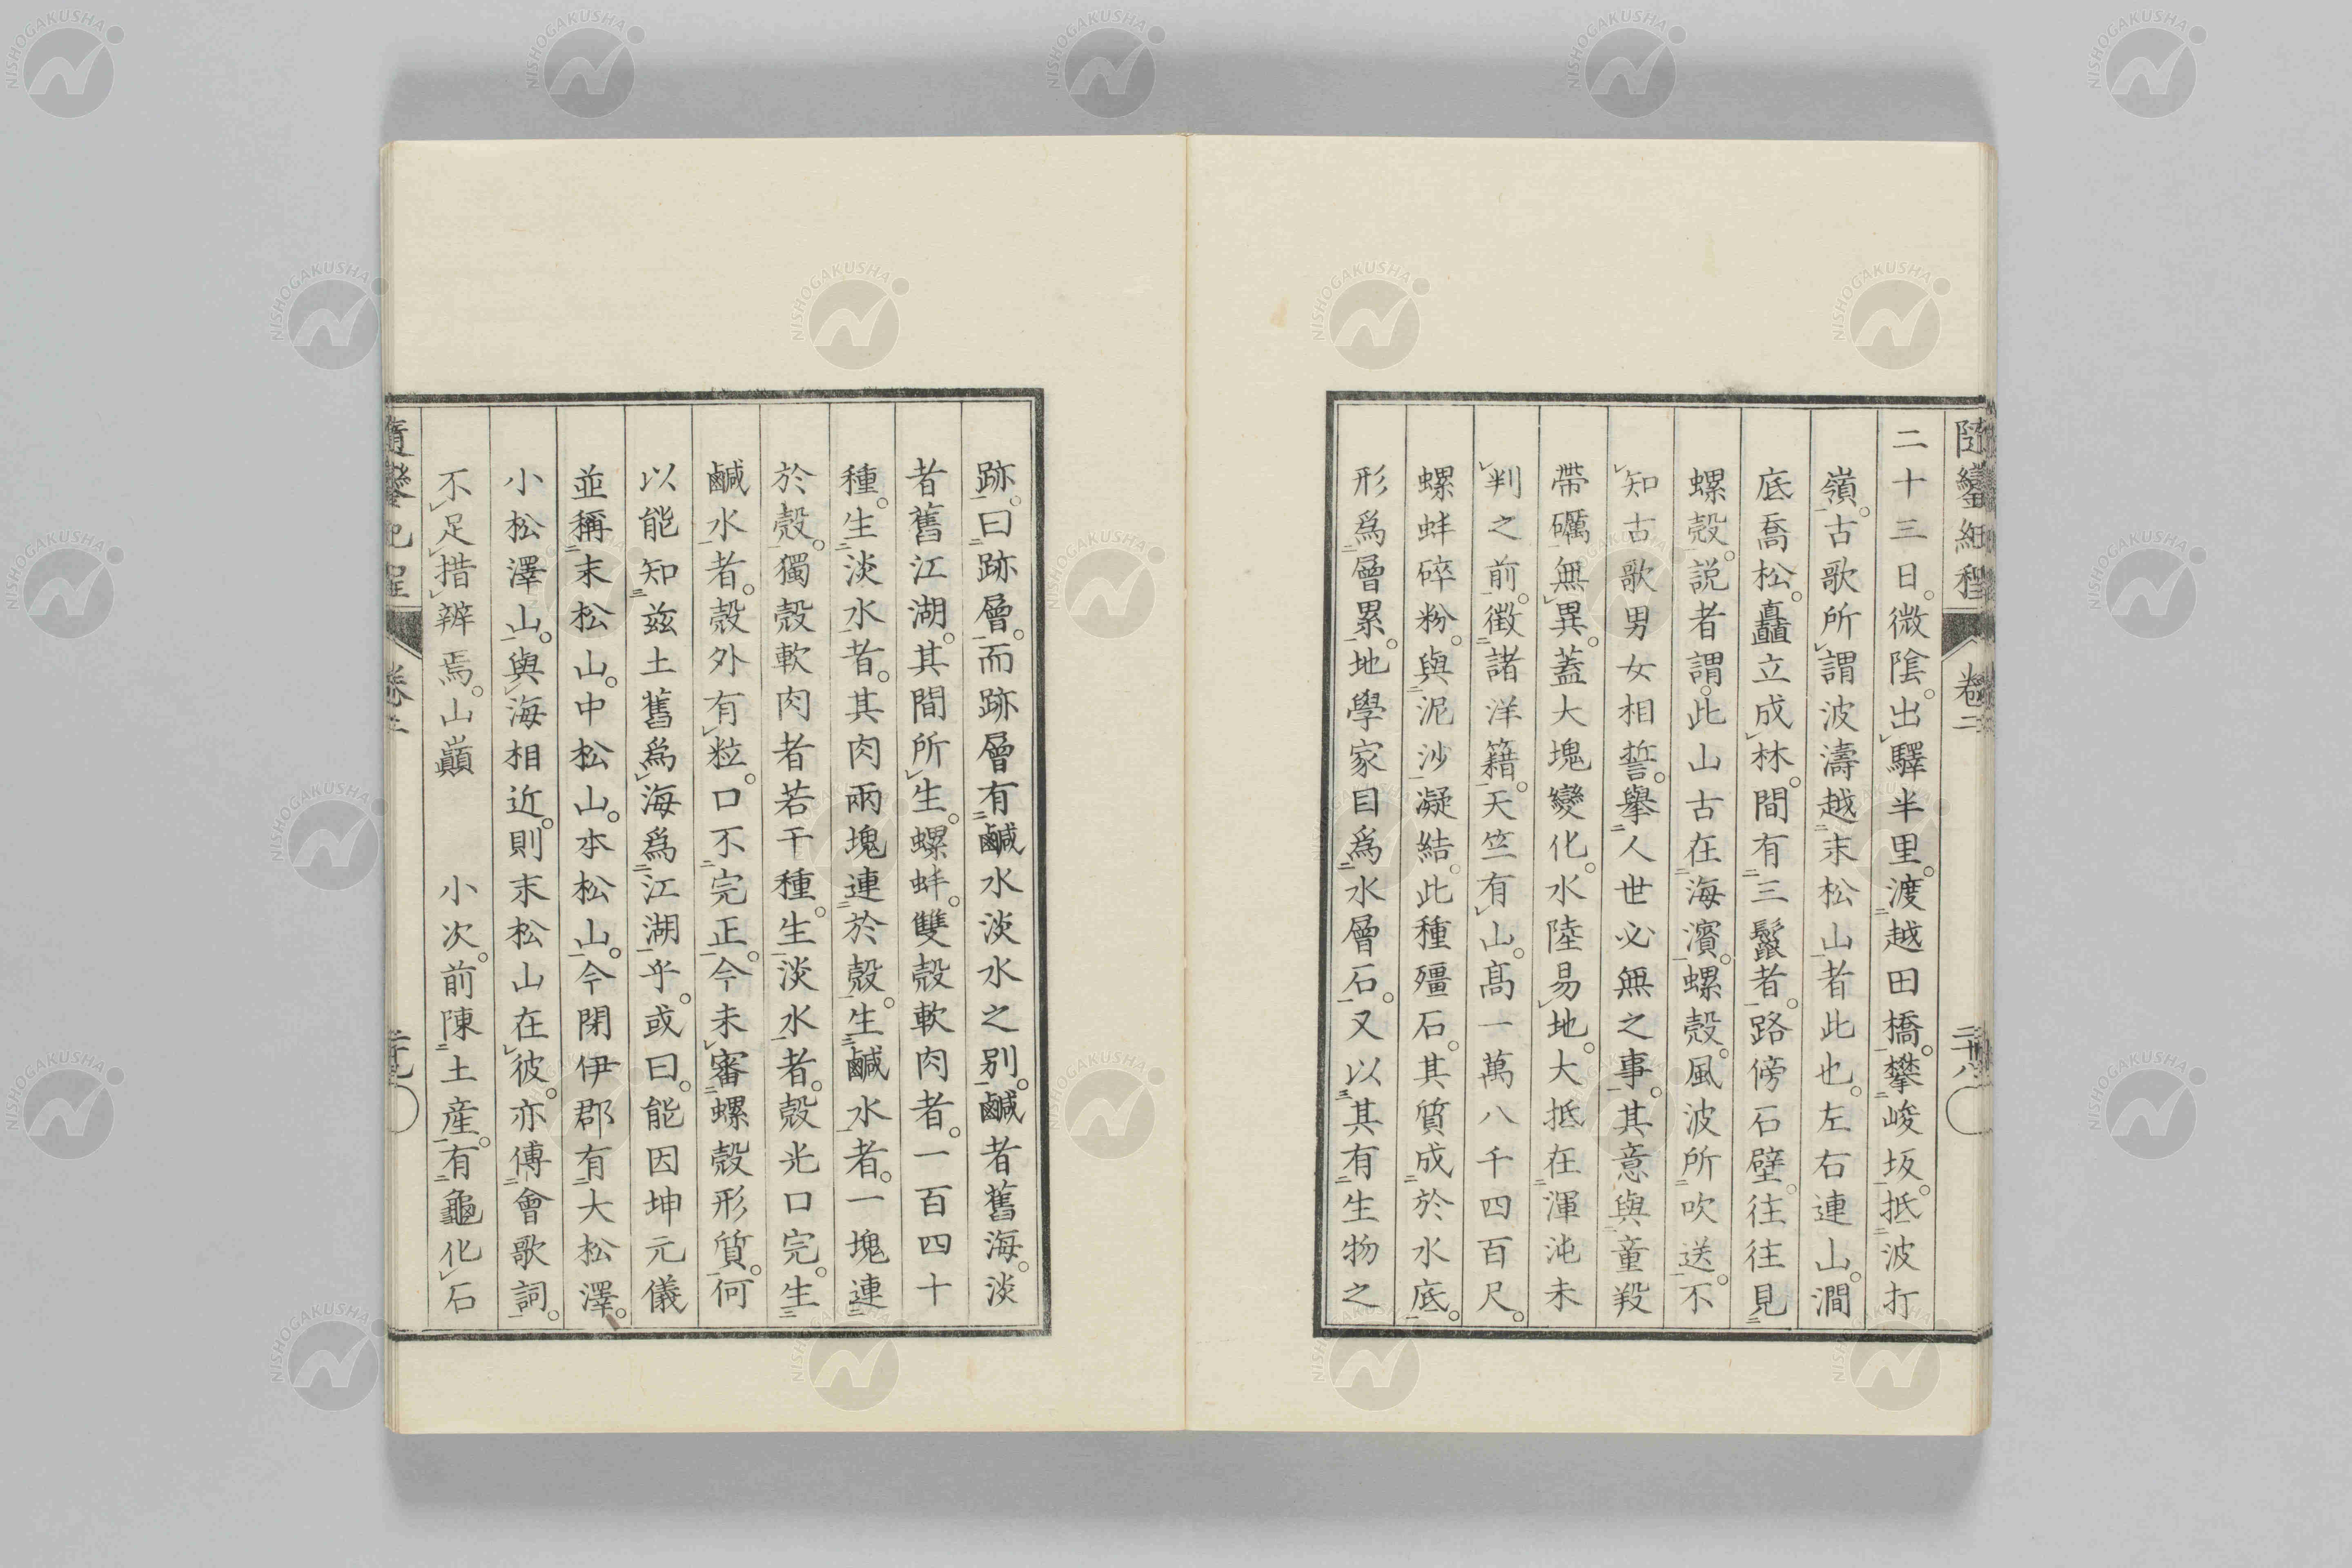 隨鑾紀程 卷二 二十八
二十三日。微陰。出驛半里。渡越田橋。攀峻坂。抵波打
嶺。古歌所謂波濤越末松山者此也。左右連山。澗
底喬松。矗立成林。間有三鬣者。路傍石壁。往往見
螺殼。説者謂。此山古在海濱。螺殼。風波所吹送。不
知古歌男女相誓。擧人世必無之事。其意與童羖
帶礪無異。蓋大塊變化。水陸易地。大抵在渾沌未
判之前。徵諸洋籍。天竺有山。高一萬八千四百尺。
螺蚌碎粉。與泥沙凝結。此種殭石。其質成於水底。
形爲層累。地學家目爲水層石。又以其有生物之
跡。曰跡層。而跡層有鹹水淡水之别。鹹者舊海。淡
者舊江湖。其間所生。螺蚌。雙殼軟肉者。一百四十
種。生淡水者。其肉兩塊連於殼。生鹹水者。一塊連
於殼。獨殼軟肉者若干種。生淡水者。殼光口完。生
鹹水者。殼外有粒。口不完正。今未審螺殼形質。何
以能知兹土舊爲海爲江湖乎。或曰。能因坤元儀
並稱末松山。中松山。本松山。今閉伊郡有大松澤。
小松澤山。與海相近。則末松山在彼。亦傅會歌詞。
不足措辨焉。山巓小次。前陳土産。有龜化石
隨鑾紀程 卷二 二十九
NISHOGAKUSHA